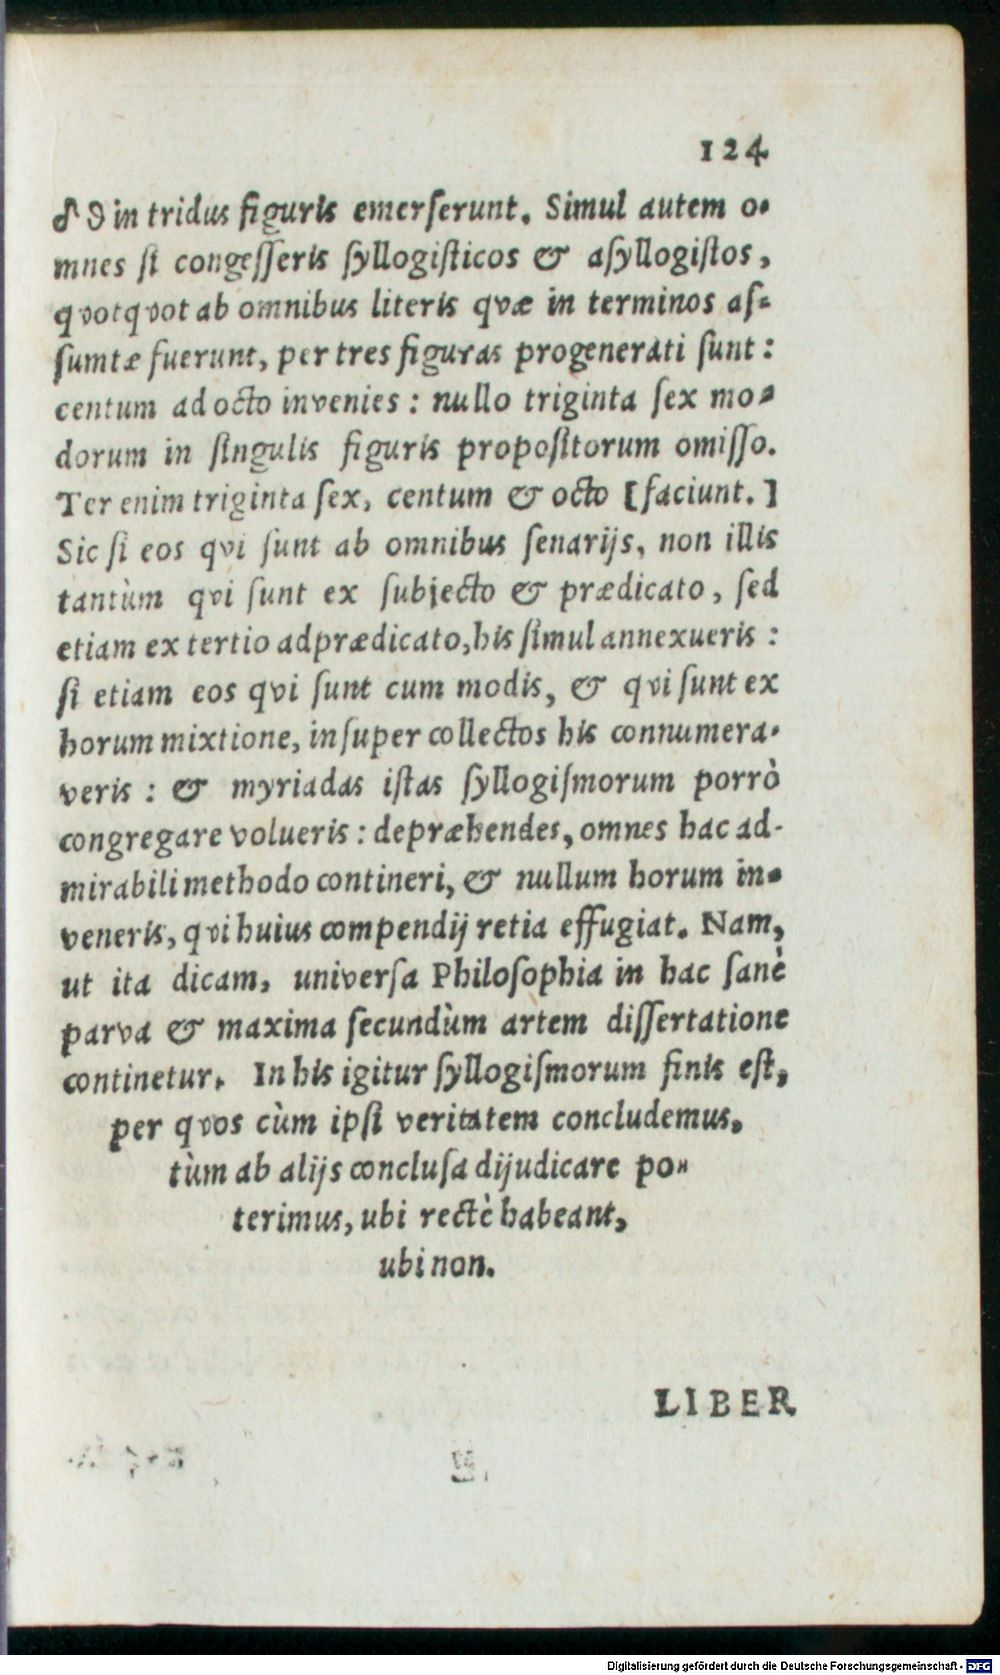 124
in tridus figuris emerſerunt. Simul autem o-
mnes ſi congeſſeris ſyllogiſticos & aſyllogiſtos,
qvotqvot ab omnibus literis qvæ in terminos aſ-
ſumtæ fuerunt, per tres figuras progenerati ſunt:
centum ad octo invenies: nullo triginta ſex mo-
dorum in ſingulis figuris propoſitorum omiſſo.
Ter enim triginta ſex, centum & octo [faciunt.]
Sic ſi eos qvi ſunt ab omnibus ſenarijs, non illis
tantùm qvi ſunt ex ſubjecto & prædicato, ſed
etiam ex tertio adprædicato, his ſimul annexueris:
ſi etiam eos qvi ſunt cum modis, & qvi ſunt ex
horum mixtione, inſuper collectos his connumera-
veris: & myriadas iſtas ſyllogiſmorum porrò
congregare volueris: depræhendes, omnes hac ad-
mirabili methodo contineri, & nullum horum in-
veneris, qvi huius compendij retia effugiat. Nam,
ut ita dicam, univerſa Philoſophia in hac ſanè
parva & maxima ſecundùm artem diſſertatione
continetur. In his igitur ſyllogiſmorum finis eſt,
per qvos cùm ipſi veritatem concludemus,
tùm ab alijs concluſa dijudicare po-
terimus, ubi rectè habeant,
ubi non.
LIBER
Digitalisierung gefördert durch die Deutsche Forschungsgemeinschaft - DFG